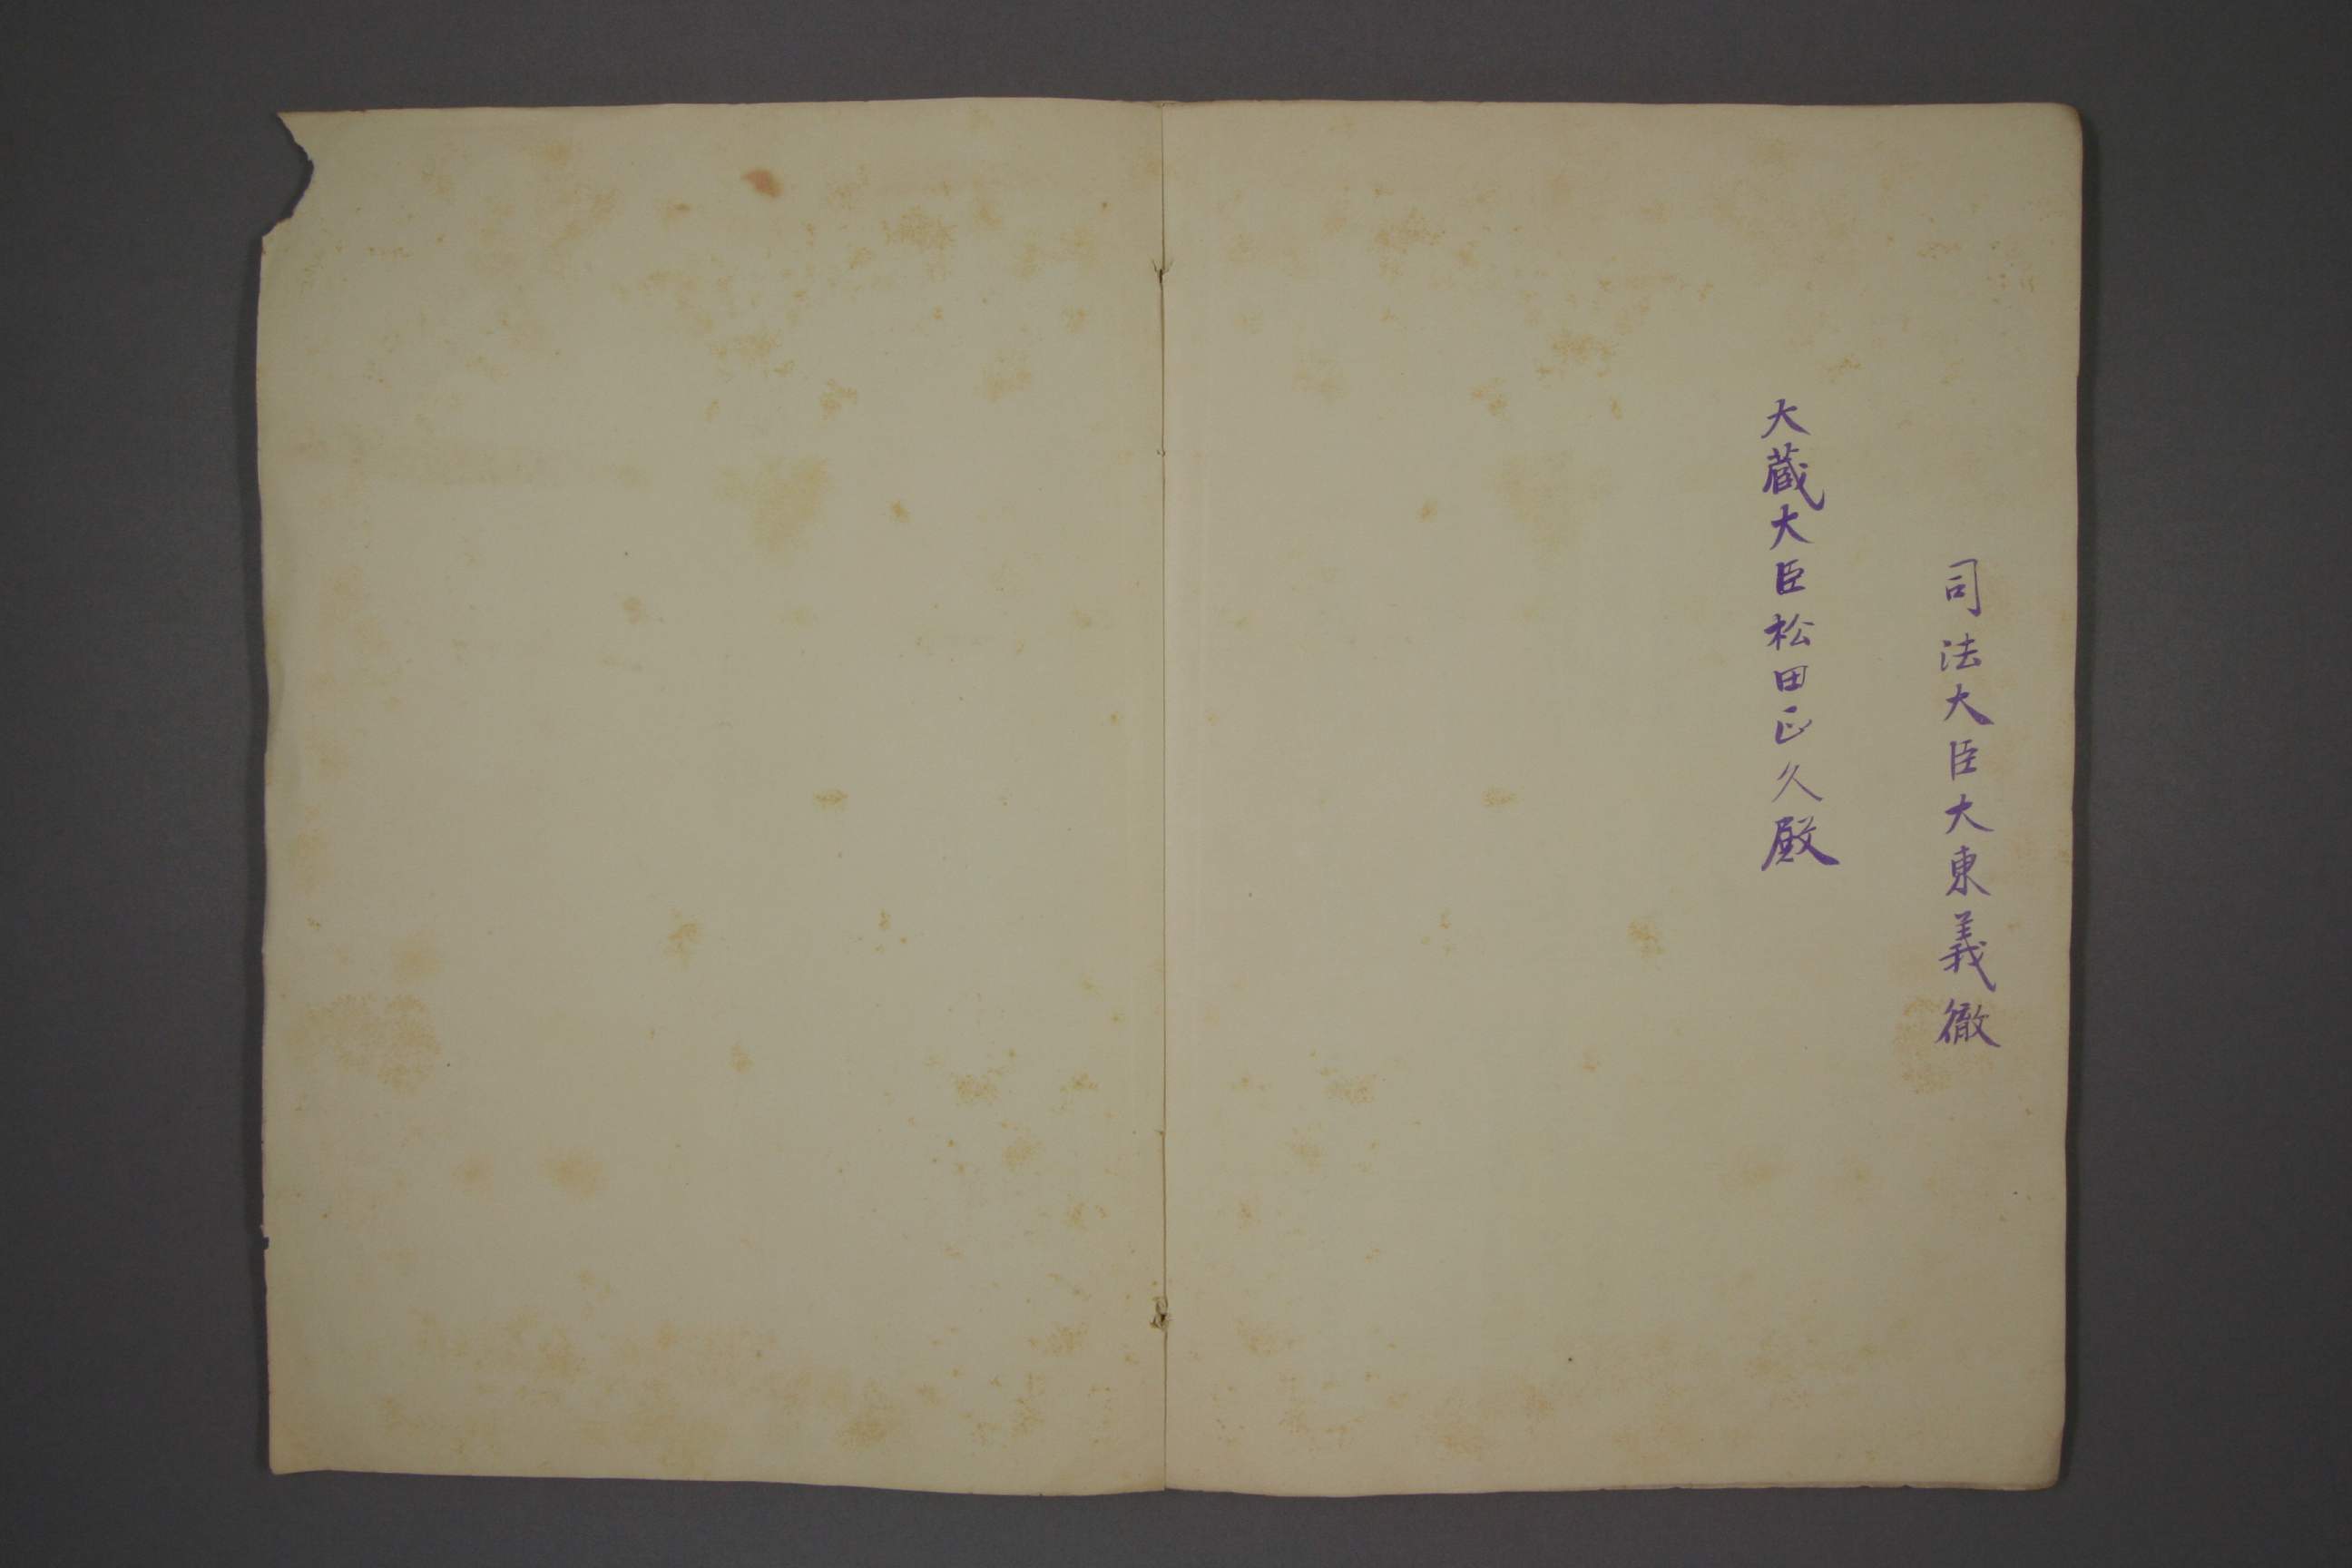 司法大臣大東義徹
大蔵大臣松田正久殿